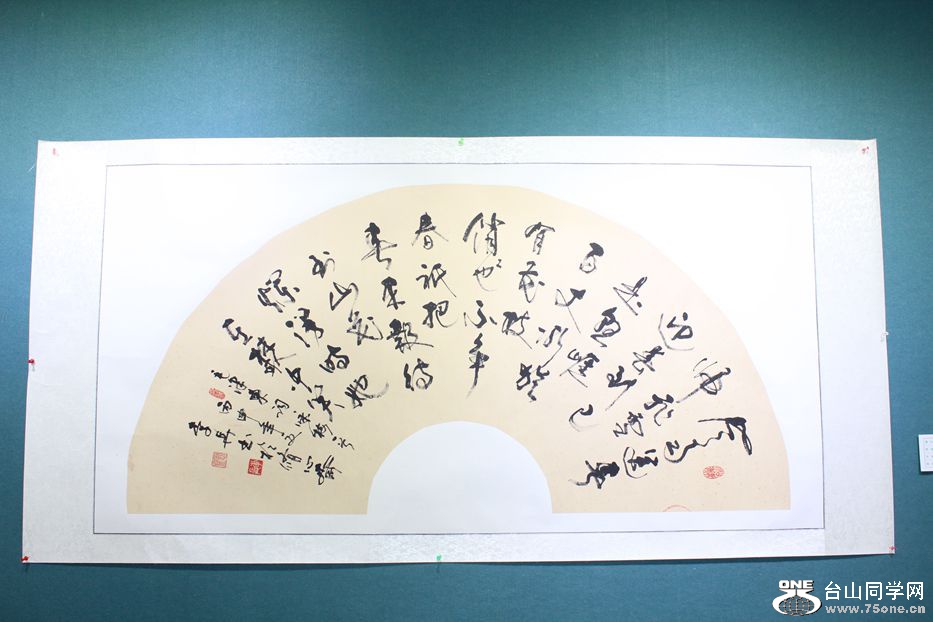 风雨送春
归飞雪
迎春到已
是悬崖
百丈冰犹
有花枝
俏也不争
春祇把
春来报待
到山花
烂漫时她
在丛中笑
毛泽东词咏梅
丙申年
ONE
台山同学网
www.75one.cn